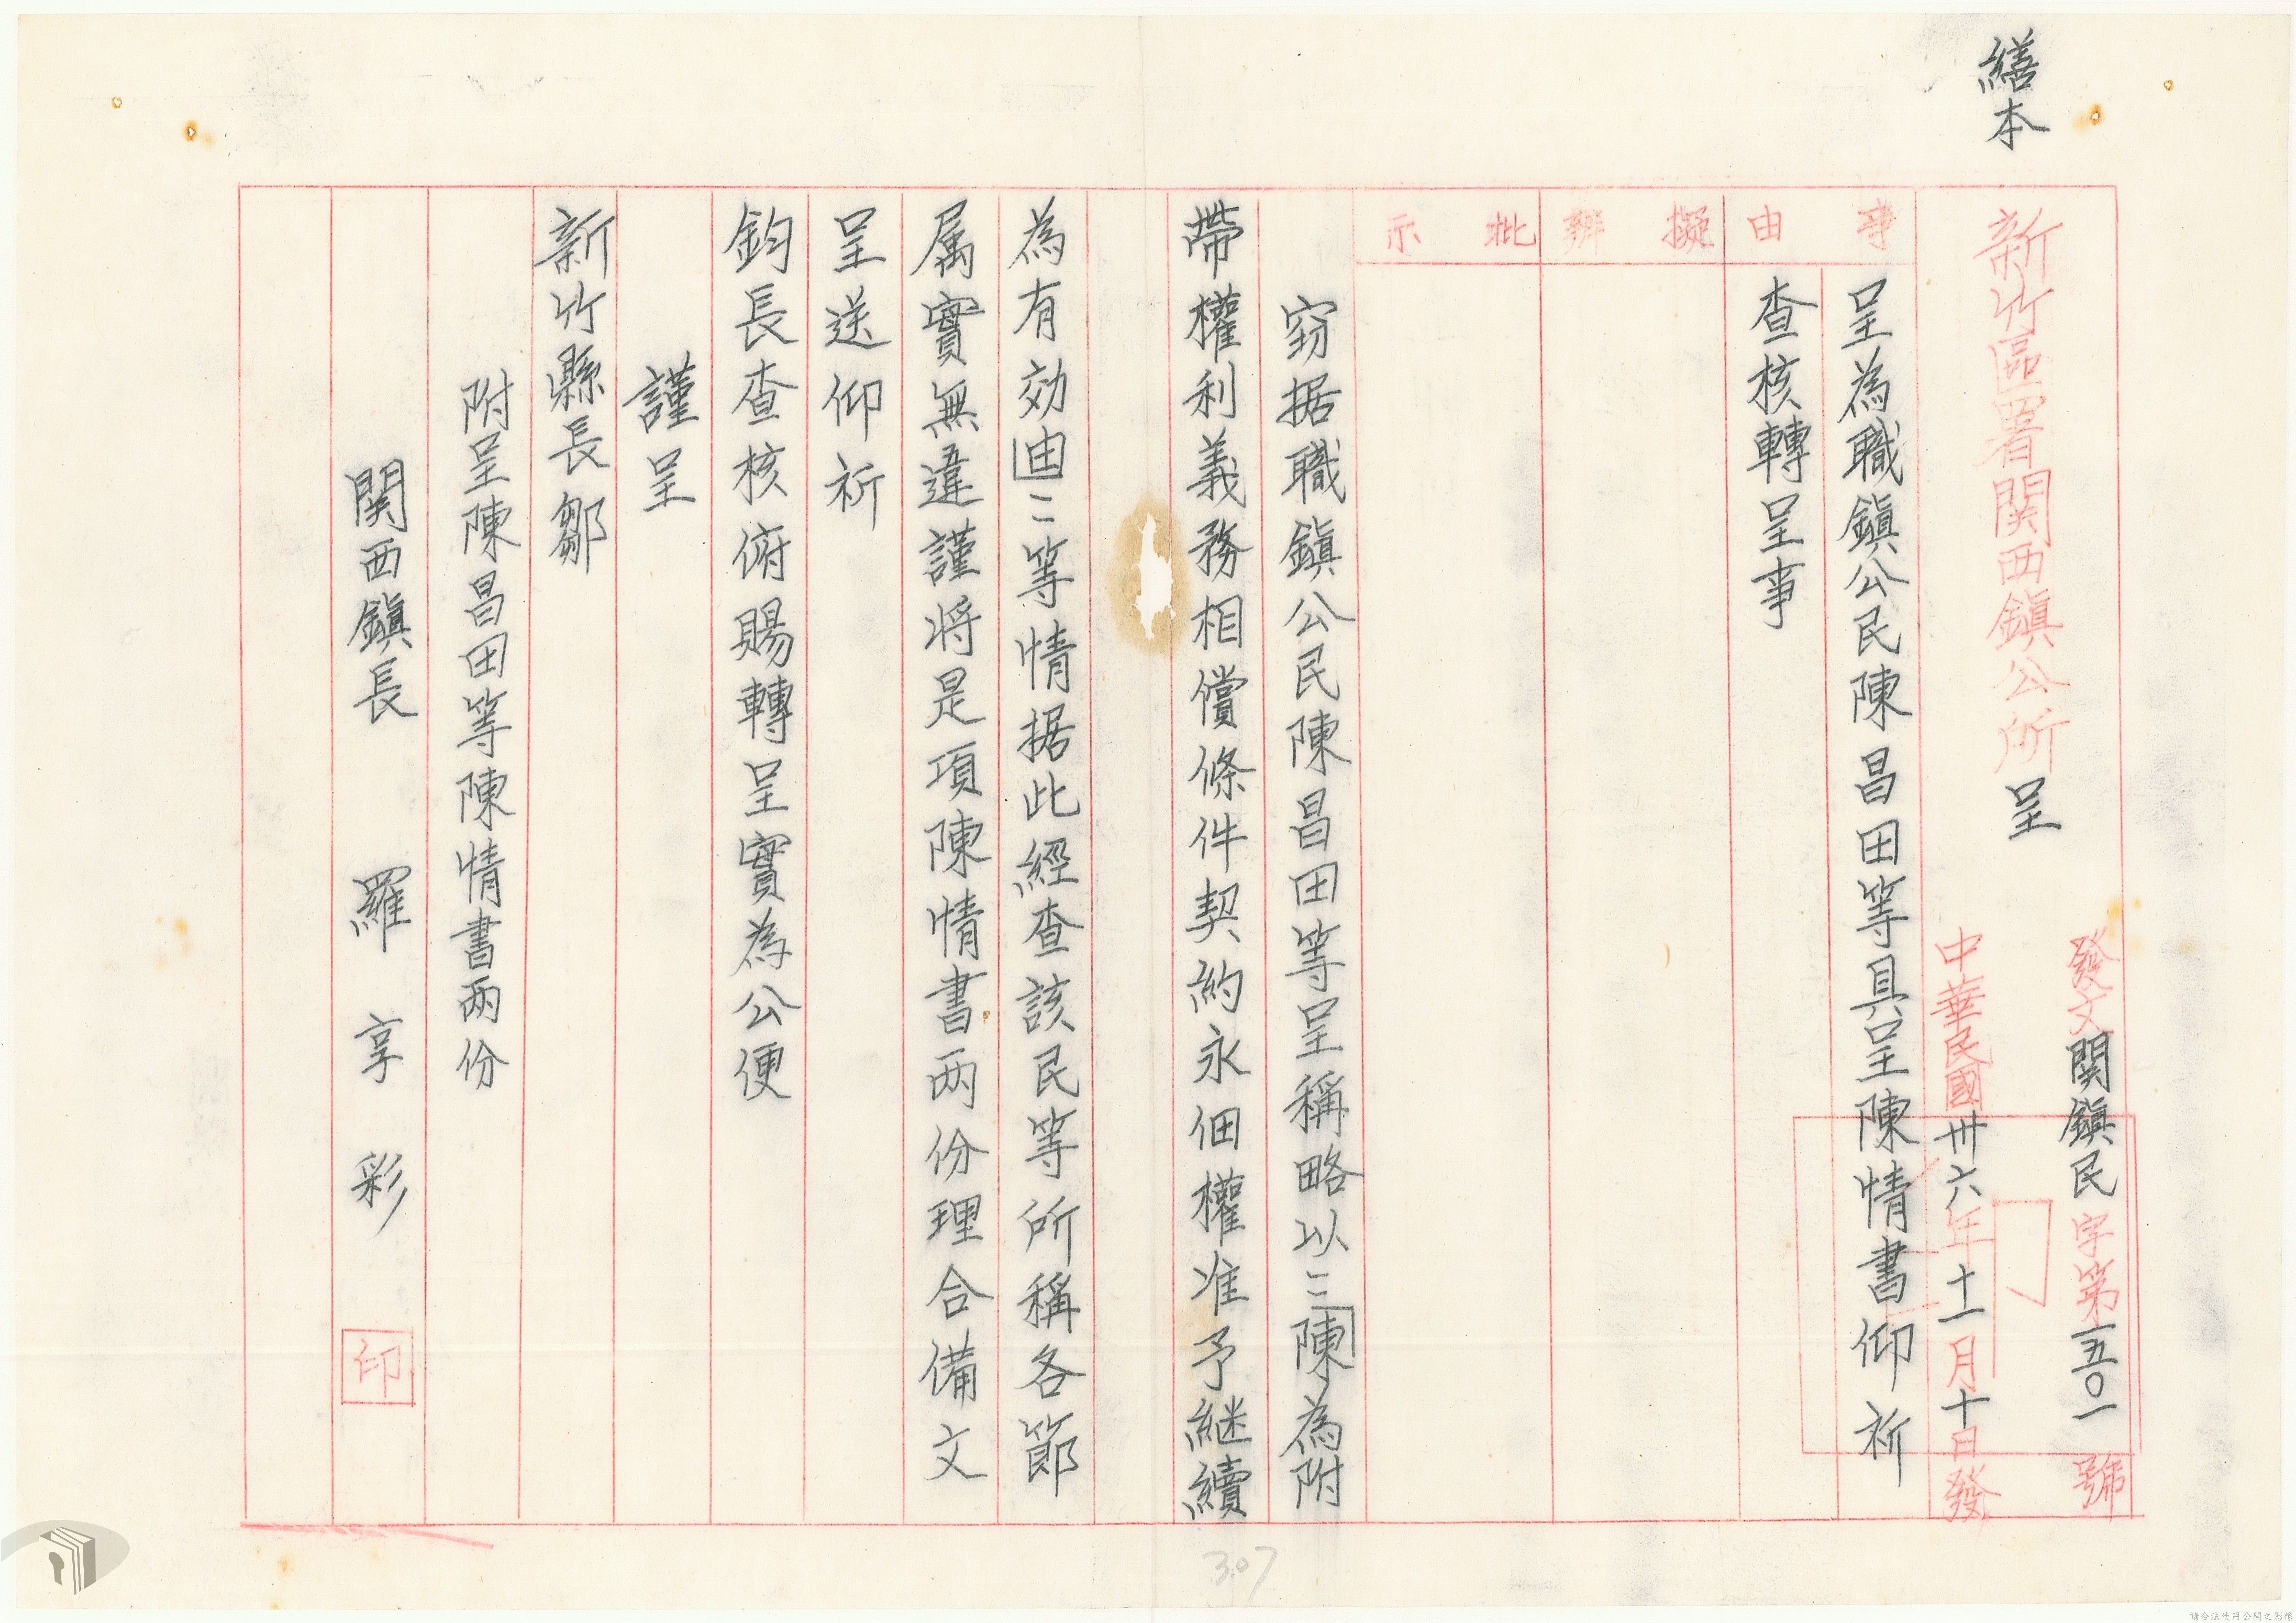 繕本
發文関鎮民字第一五〇一號
新竹區署関西鎮公所呈
中華民國卅六年十一月十日發
事由
擬辦
批示
呈為職鎮公民陳昌田等具呈陳情書仰祈
查核轉呈事
窃据職鎮公民陳昌田等呈稱略以二陳為附
帶權利義務相償條件契約永佃權准予継續
為有効由二等情据此經查該民等所稱各節
属實無違謹将是項陳情書两份理合備文
呈送仰祈
鈞長查核俯賜轉呈實為公便
謹呈
新竹縣長鄒
附呈陳昌田等陳情書两份
関西鎮長 羅享彩 印
印
307
請合法使用公開之影像